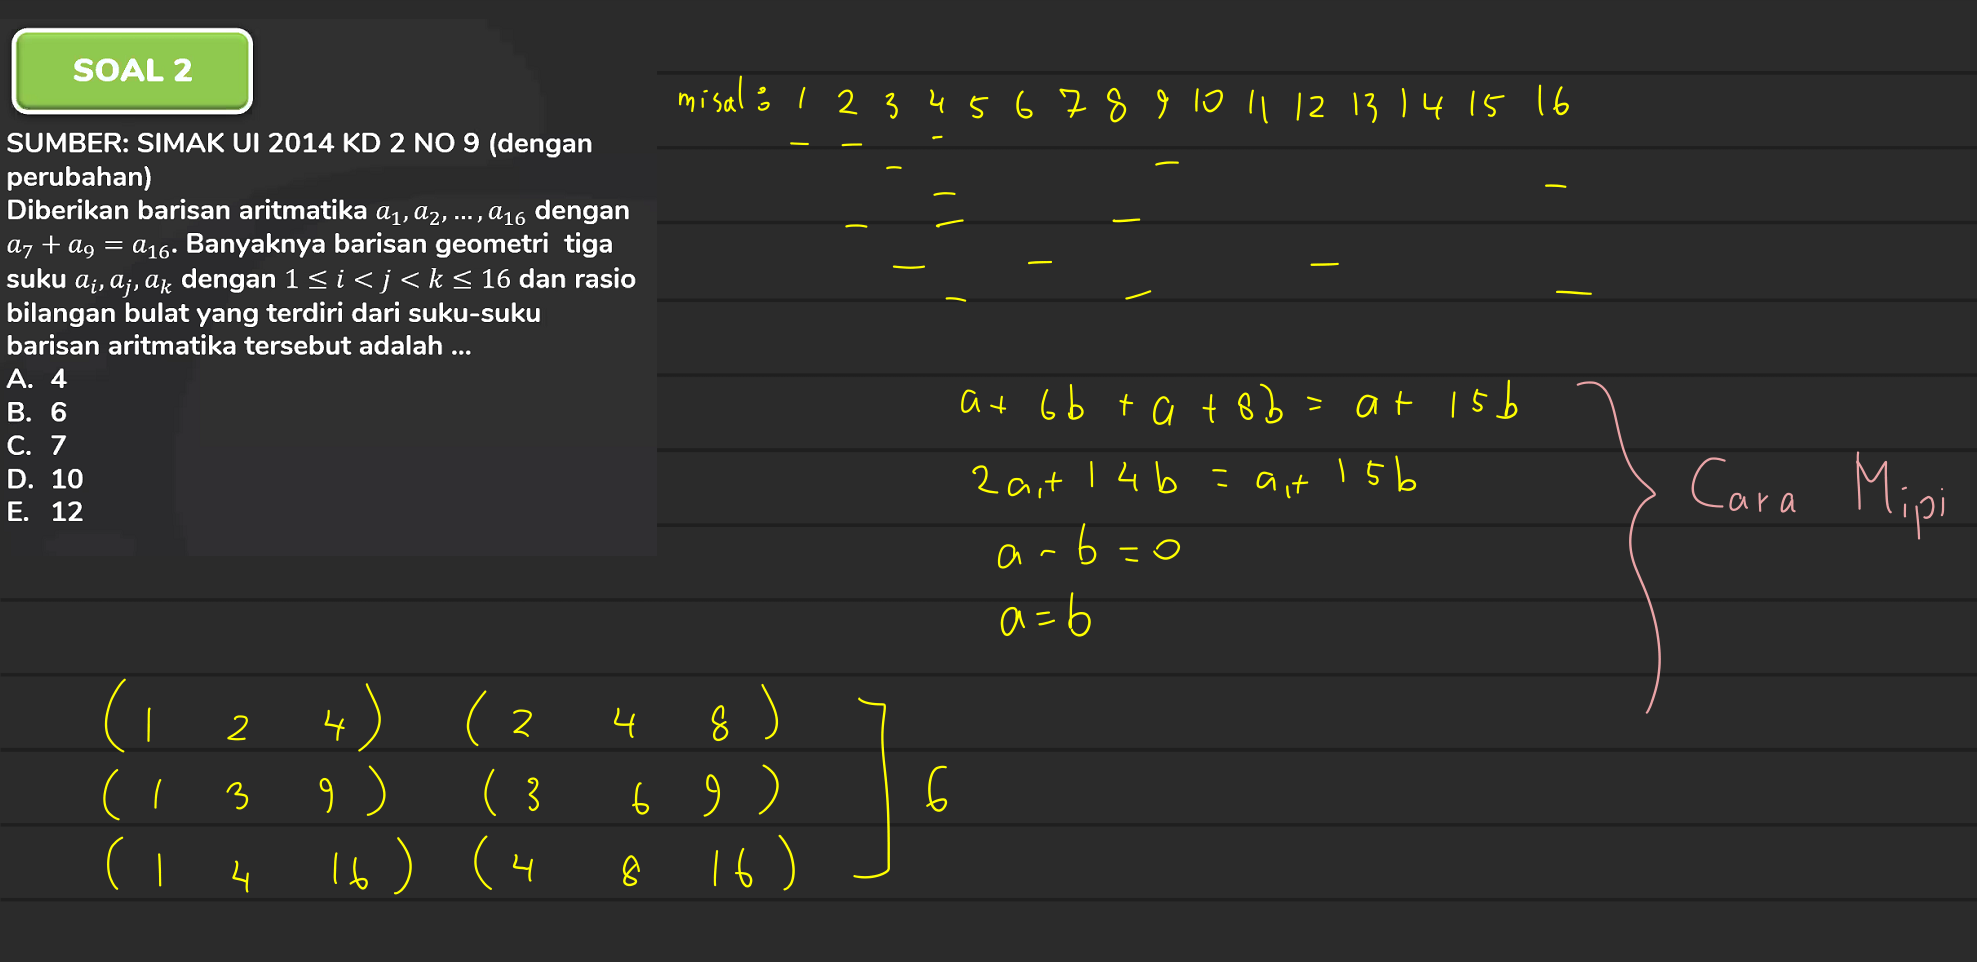 SOAL 2
SUMBER: SIMAK UI 2014 KD 2 NO 9 (dengan
perubahan)
Diberikan barisan aritmatika a₁, a₂, …, a₁₆ dengan
a₇ + a₉ = a₁₆. Banyaknya barisan geometri tiga
suku aᵢ, aⱼ, aₖ dengan 1 ≤ i < j < k ≤ 16 dan rasio
bilangan bulat yang terdiri dari suku-suku
barisan aritmatika tersebut adalah ...
A. 4
B. 6
C. 7
D. 10
E. 12
misal : 1 2 3 4 5 6 7 8 9 10 11 12 13 14 15 16
a + 6b + a + 8b = a + 15b
2a₁ + 14b = a₁ + 15b
a - b = 0
a = b
Cara Mipi
(1 2 4) (2 4 8)
(1 3 9) (3 6 9)
(1 4 16) (4 8 16)
6